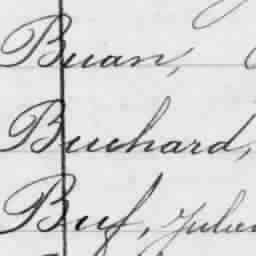 Buan,
Buchard,
Buf, Julien